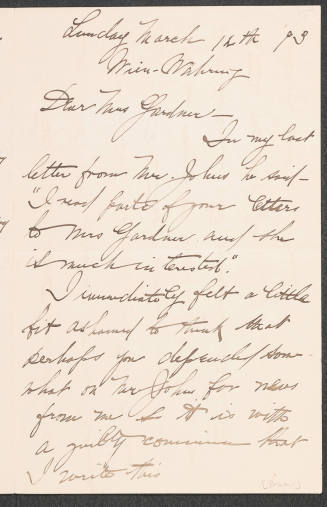 Sunday March 12th 93
Wien-Währing
Dear Mrs Gardner—
In my last
letter from Mr. Johns he said—
"I read parts of your letters
to Mrs Gardner and she
is much interested."
I immediately felt a little
bit ashamed to think that
perhaps you depended some
what on Mr Johns for news
from me & it is with
a guilty conscience that
I write this